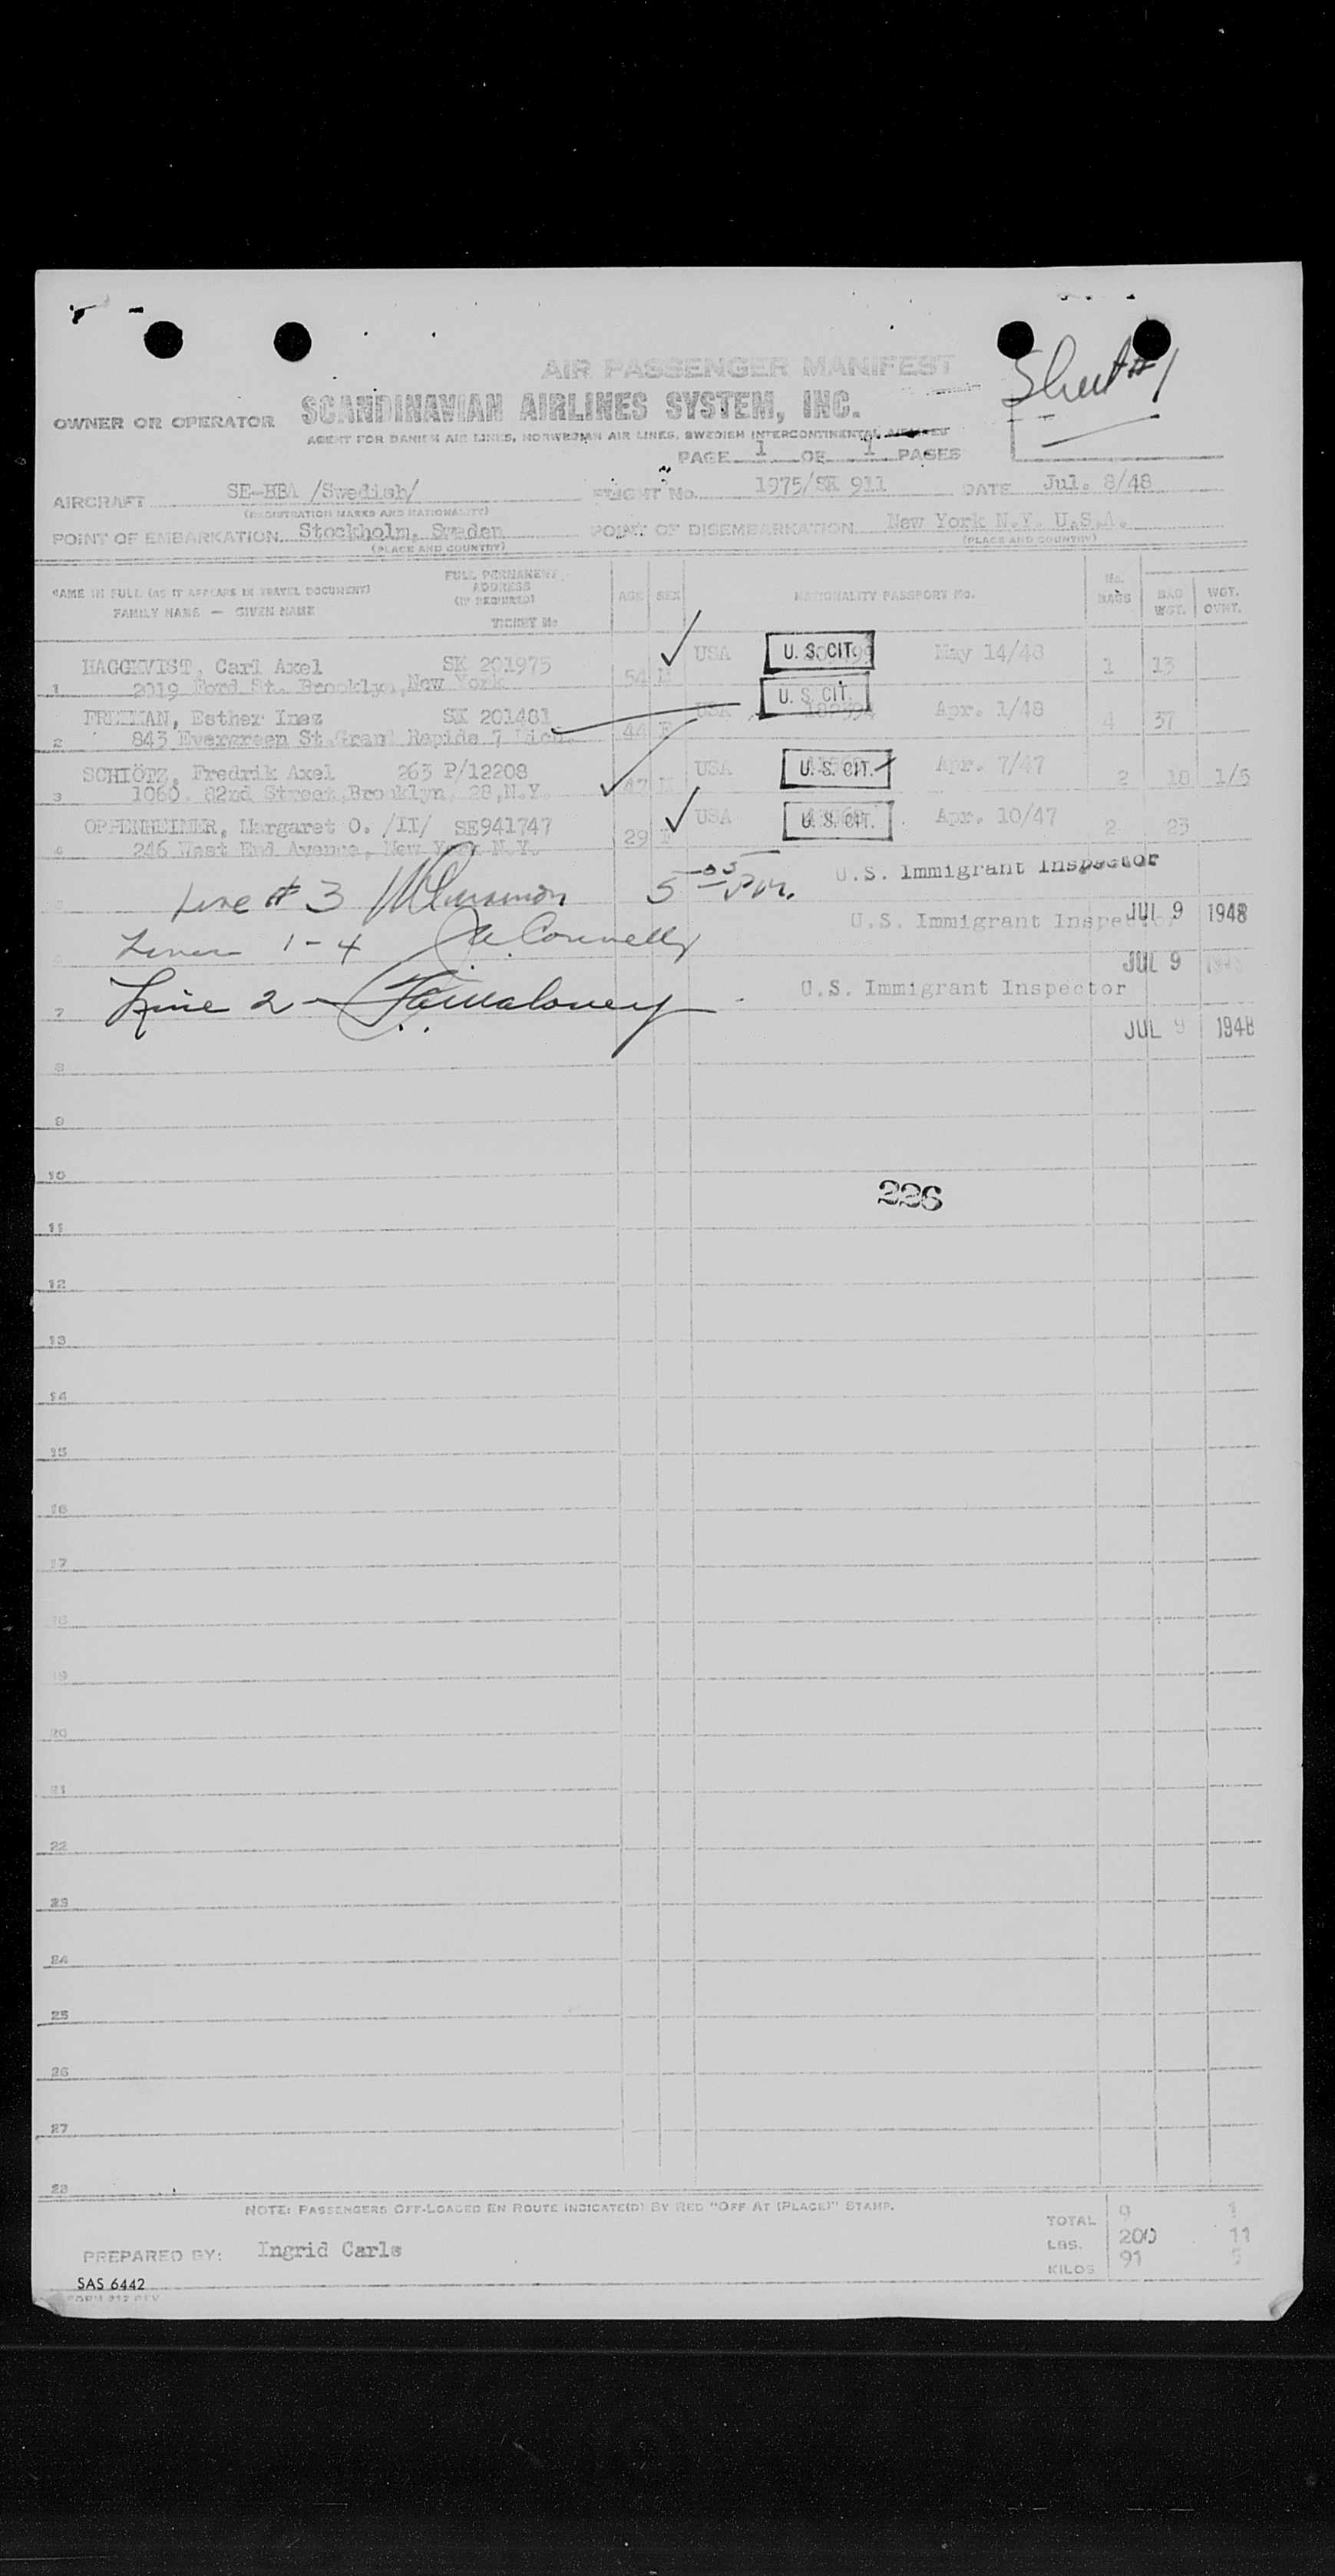 Sheet #1
AIR PASSENGER MANIFEST
OWNER OR OPERATOR SCANDINAVIAN AIRLINES SYSTEM, INC.
AGENT FOR DANISH AIR LINES, NORWEGIAN AIR LINES, SWEDISH INTERCONTINENTAL AIRLINES
PAGE 1 OF 1 PAGES
AIRCRAFT SE-BBA /Swedish/ FLIGHT No. 1975/SK 911 DATE Jul. 8/48
(REGISTRATION MARKS AND NATIONALITY)
POINT OF EMBARKATION Stockholm, Sweden POINT OF DISEMBARKATION New York N.Y. U.S.A.
(PLACE AND COUNTRY) (PLACE AND COUNTRY)
NAME IN FULL (AS IT APPEARS IN TRAVEL DOCUMENT) FULL PERMANENT ADDRESS (IF REQUIRED) AGE SEX NATIONALITY PASSPORT No. No. BAGS BAG WGT. WGT. OVWT.
FAMILY NAME — GIVEN NAME TICKET No
HAGGKVIST, Carl Axel SK 201975 USA U. S. CIT. May 14/48 1 13
1 2019 Ford St. Brooklyn, New York 54 M
FREIMAN, Esther Inez SK 201481 USA U. S. CIT. 189394 Apr. 1/48 4 37
2 843 Evergreen St. Grand Rapids 7 Mich. 44 F
SCHIÖTZ, Fredrik Axel 263 P/12208 USA U. S. CIT. Apr. 7/47 2 18 1/5
3 1060. 82nd Street, Brooklyn, 28, N.Y. 47 M
OPPENHEIMER, Margaret O. /II/ SE941747 USA U. S. CIT. Apr. 10/47 2 23
4 246 West End Avenue, New York N.Y. 29 F
Line # 3 5 05 P.M. U.S. Immigrant Inspector
JUL 9 1948
Lines 1-4 Connelly U.S. Immigrant Inspector
JUL 9 1948
Line 2 - Maloney U.S. Immigrant Inspector
7
JUL 9 1948
8
9
10
226
11
12
13
14
15
16
17
18
19
20
21
22
23
24
25
26
27
28
NOTE: PASSENGERS OFF-LOADED EN ROUTE INDICATE(D) BY RED "OFF AT (PLACE)" STAMP.
TOTAL 9 1
LBS. 200 11
PREPARED BY: Ingrid Carls
KILOS 91 5
SAS 6442